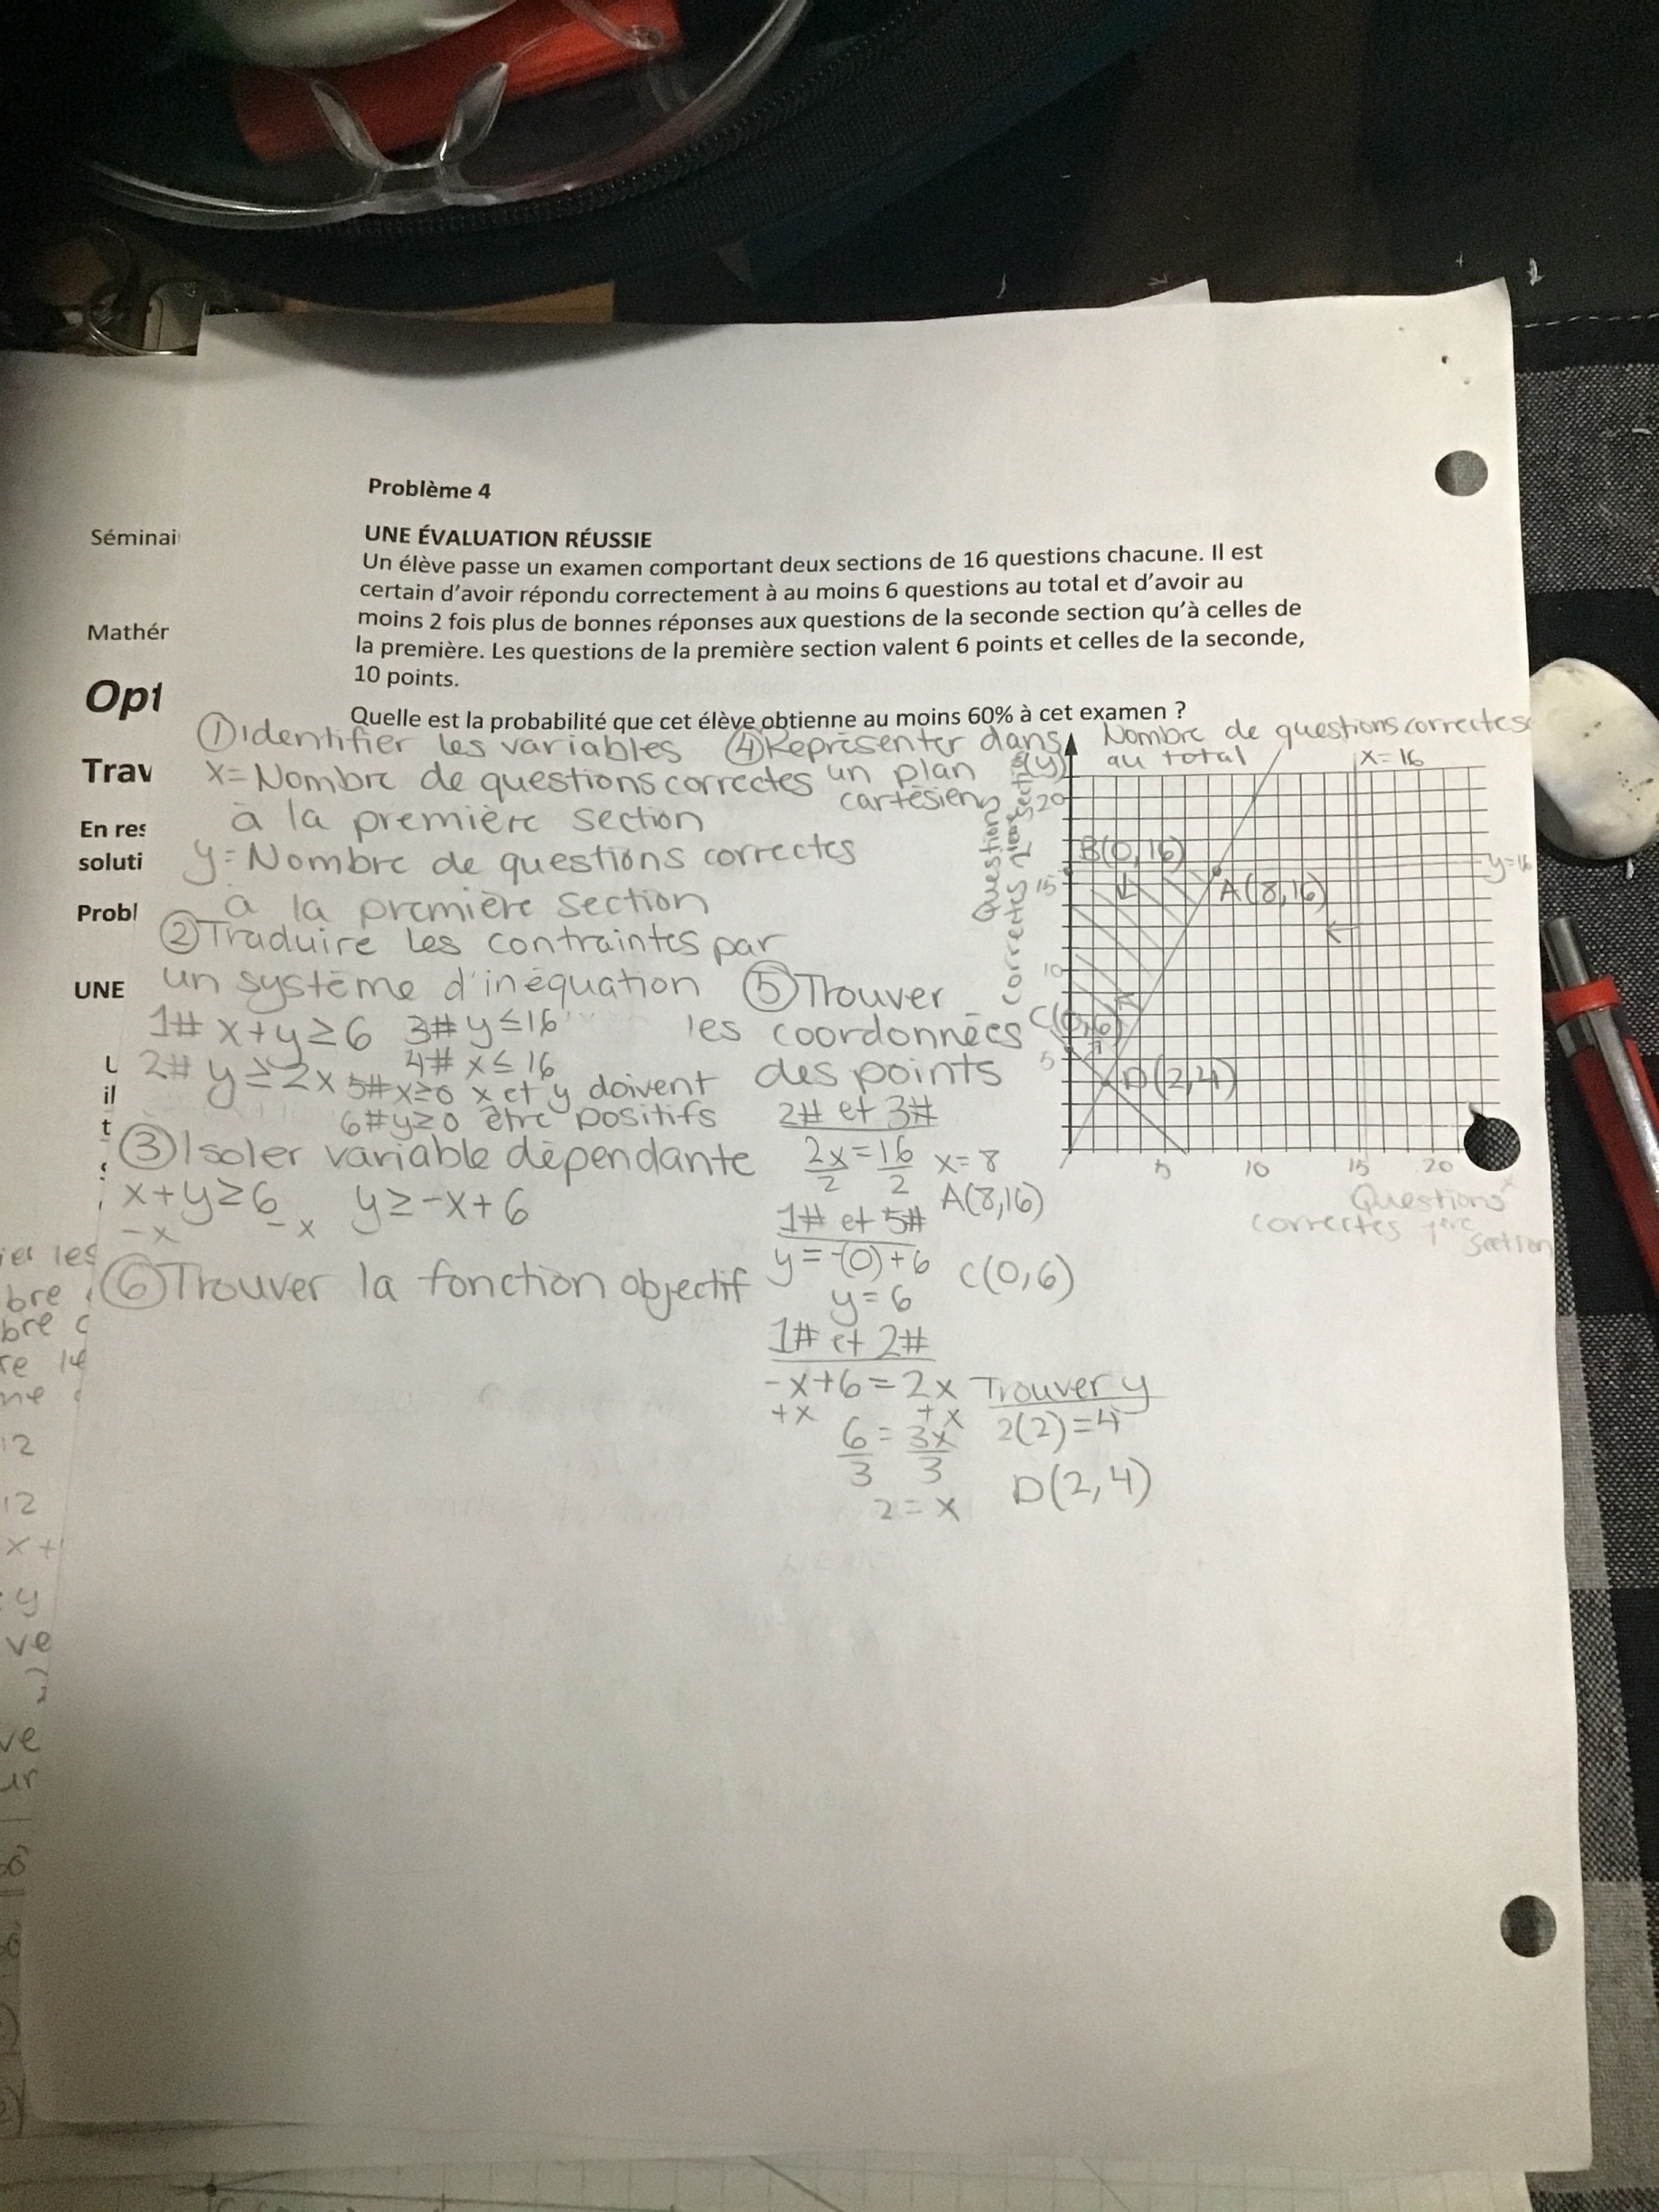 Problème 4
UNE ÉVALUATION RÉUSSIE
Un élève passe un examen comportant deux sections de 16 questions chacune. Il est
certain d'avoir répondu correctement à au moins 6 questions au total et d'avoir au
moins 2 fois plus de bonnes réponses aux questions de la seconde section qu'à celles de
la première. Les questions de la première section valent 6 points et celles de la seconde,
10 points.
Quelle est la probabilité que cet élève obtienne au moins 60% à cet examen ?
Séminai
Mathér
Opt
Trav
En res
soluti
Probl
UNE
il
t
① Identifier les variables
x = Nombre de questions correctes
à la première section
y = Nombre de questions correctes
à la première section
② Traduire les contraintes par
un système d'inéquation
1# x+y≥6 3# y≤16
2# y≥2x 4# x≤16
5# x≥0 x et y doivent
6# y≥0 être positifs
③ Isoler variable dépendante
x+y≥6 y≥-x+6
-x -x
⑥ Trouver la fonction objectif
④ Représenter dans
un plan
cartésien
Nombre de questions correctes
au total
(y)
Questions
correctes
section
x=16
y=16
20
15
10
5
B(0,16)
A(8,16)
C(0,6)
D(2,4)
5 10 15 20
x
Questions
correctes 1ère
section
⑤ Trouver
les coordonnées
des points
2# et 3#
2x=16 x=8
2 2
A(8,16)
1# et 5#
y=-(0)+6 C(0,6)
y=6
1# et 2#
-x+6=2x Trouver y
+x +x 2(2)=4
6 = 3x
3 3 D(2,4)
2=x
ier les
bre
bre c
re 1e
12
12
x+
y
ve
ve
ur